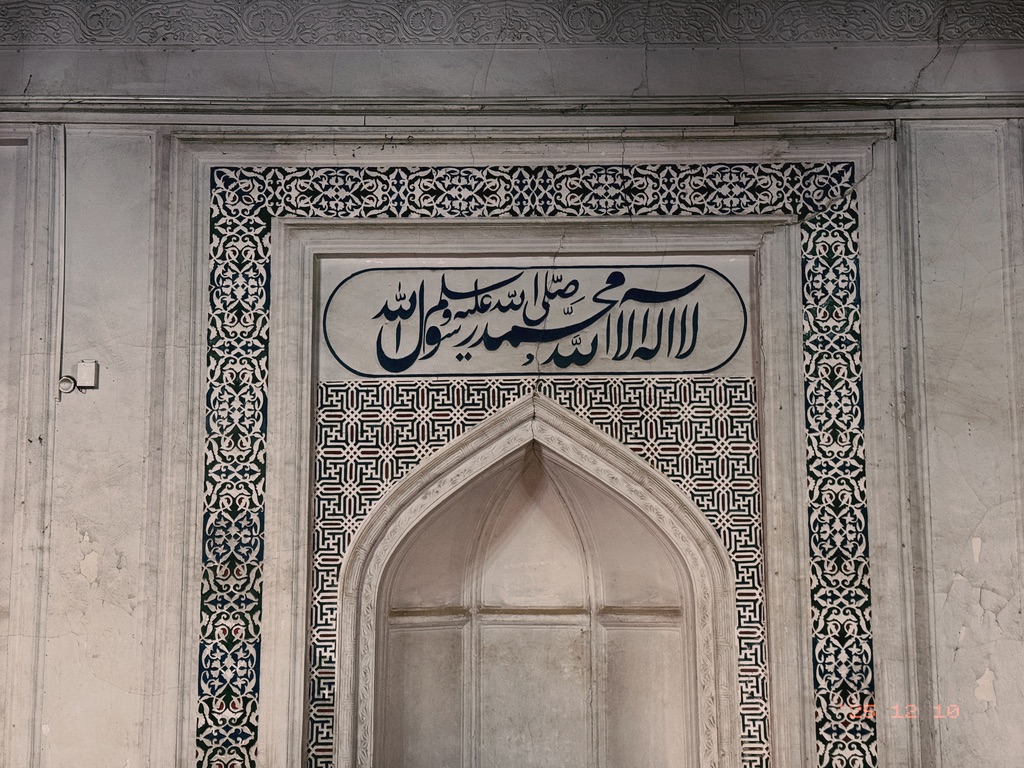 لا اله الا الله محمد رسول الله صلى الله عليه وسلم
25 12 10